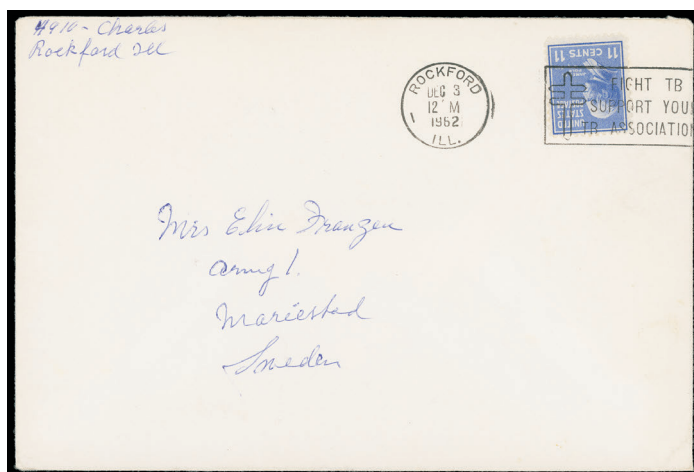 Charles
Rockford Ill
ROCKFORD
DEC 3
12 M
1962
ILL.
11 CENTS 11
UNITED
STATES
FIGHT TB
SUPPORT YOU
TB ASSOCIATION
Mrs Elin Franzen
Mariestad
Sweden